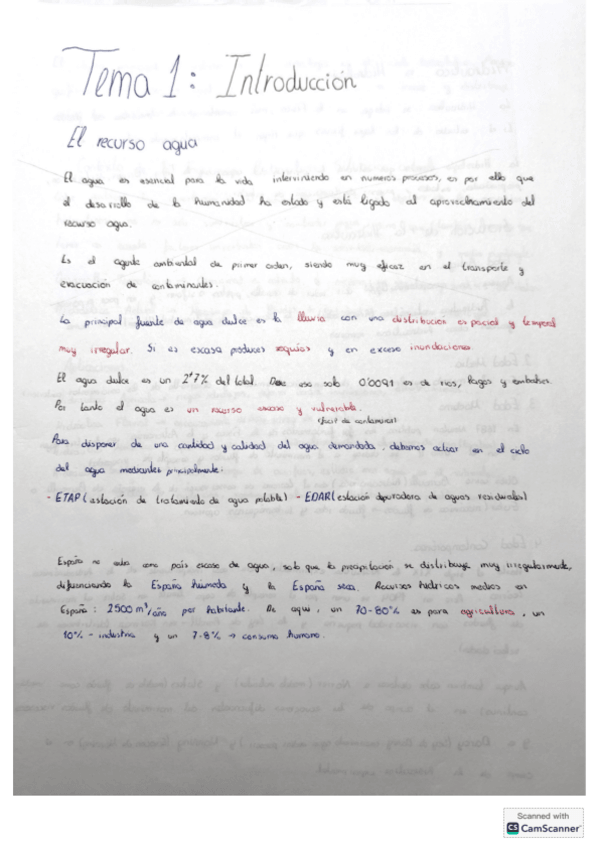 Tema 1: Introducción
El recurso agua
El agua es esencial para la vida interviniendo en numeros procesos, es por ello que
el desarrollo de la humanidad ha estado y está ligado al aprovechamiento del
recurso agua.
Es el agente ambiental de primer orden, siendo muy eficaz en el transporte y
evacuación de contaminantes.
La principal fuente de agua dulce es la lluvia con una distribución espacial y temporal
muy irregular. Si es escasa produces sequías y en exceso inundaciones.
El agua dulce es un 2'7% del total. De ese solo 0'0091 es de ríos, lagos y embalses.
Por tanto el agua es un recurso escaso y vulnerable.
(fácil de contaminar)
Para disponer de una cantidad y calidad del agua demandada, debemos actuar en el ciclo
del agua mediantes principalmente:
- ETAP (estación de tratamiento de agua potable) - EDAR (estación depuradora de aguas residuales)
España no es como país escaso de agua, solo que la precipitación se distribuye muy irregularmente,
diferenciando la España húmeda y la España seca. Recursos hídricos medios en
España: 2500 m³/año por habitante. De aquí, un 70-80% es para agricultura, un
10% - industria y un 7-8% → consumo humano.
Scanned with
CS CamScanner